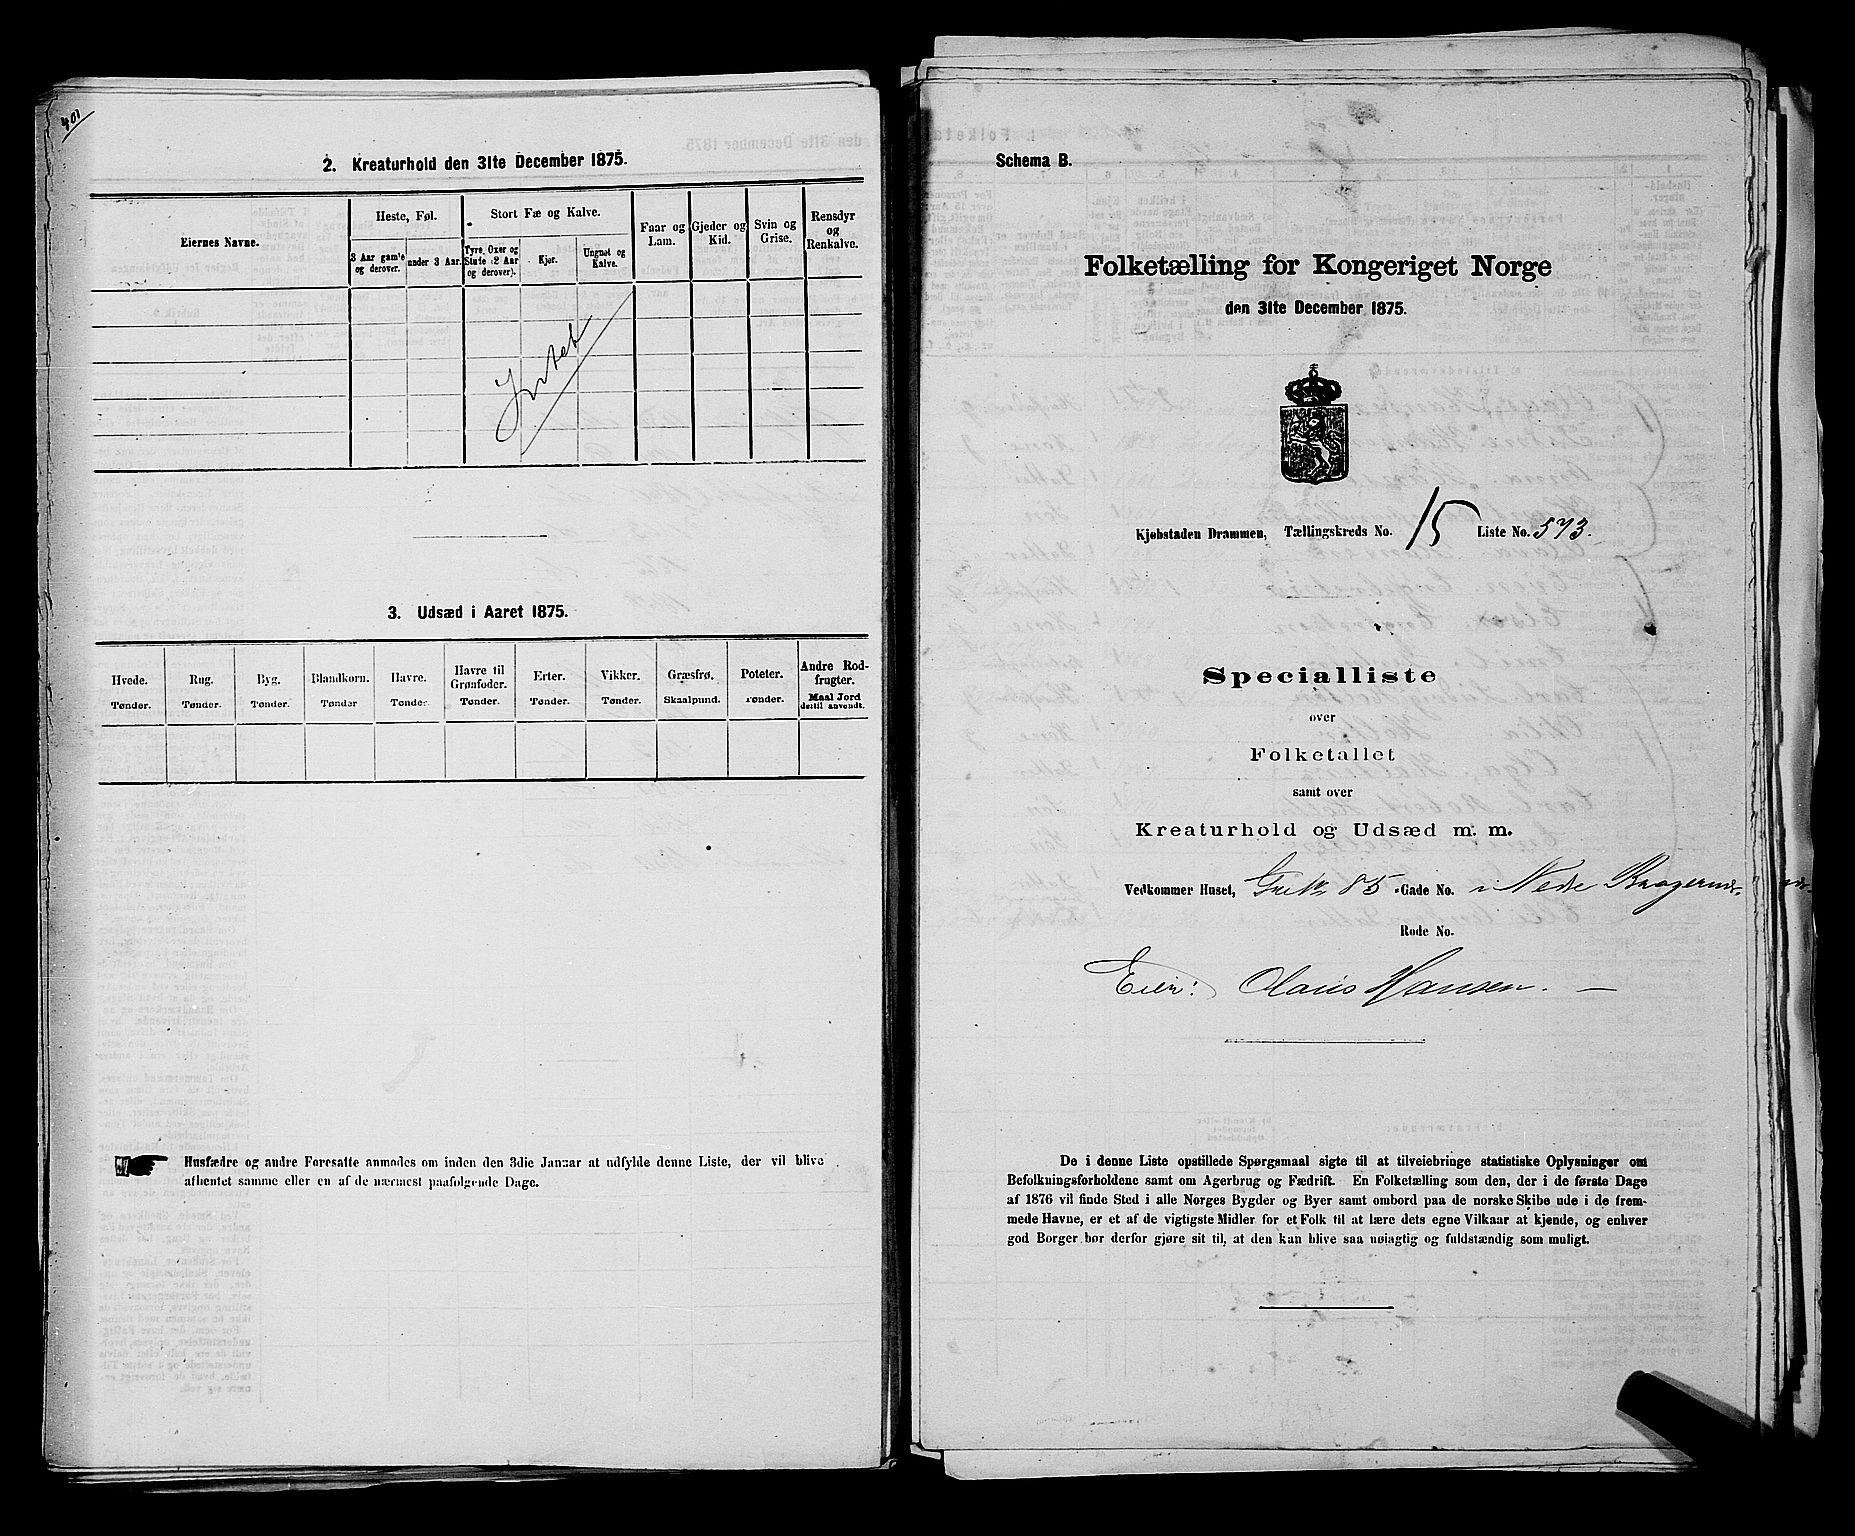 401
2. Kreaturhold den 31te December 1875.
Eiernes Navne.
Heste, Føl.
Stort Fæ og Kalve.
Faar og Lam.
Gjeder og Kid.
Svin og Grise.
Rensdyr og Renkalve.
3 Aar gamle og derover.
under 3 Aar.
Tyre, Oxer og Stude (2 Aar og derover).
Kjør.
Ungnøt og Kalve.
Intet
3. Udsæd i Aaret 1875.
Hvede. Rug. Byg. Blandkorn. Havre. Havre til Grønfoder. Erter. Vikker. Græsfrø. Poteter. Andre Rodfrugter.
Tønder. Tønder. Tønder. Tønder Tønder. Tønder. Tønder. Tønder. Skaalpund. Tønder. Maal Jord dertil anvendt.
Husfædre og andre Foresatte anmodes om inden den 3die Januar at udfylde denne Liste, der vil blive
afhentet samme eller en af de nærmest paafølgende Dage.
Schema B.
Folketælling for Kongeriget Norge
den 31te December 1875.
Kjøbstaden Drammen, Tællingskreds No. 15 Liste No. 573.
Specialliste
over
Folketallet
samt over
Kreaturhold og Udsæd m. m.
Vedkommer Huset, 85 Gade No. i Nedre
Rode No.
Eier: Olaus Hansen.
De i denne Liste opstillede Spørgsmaal sigte til at tilveiebringe statistiske Oplysninger om
Befolkningsforholdene samt om Agerbrug og Fædrift. En Folketælling som den, der i de første Dage
af 1876 vil finde Sted i alle Norges Bygder og Byer samt ombord paa de norske Skibe ude i de frem-
mede Havne, er et af de vigtigste Midler for et Folk til at lære dets egne Vilkaar at kjende, og enhver
god Borger bør derfor gjøre sit til, at den kan blive saa nøiagtig og fuldstændig som muligt.